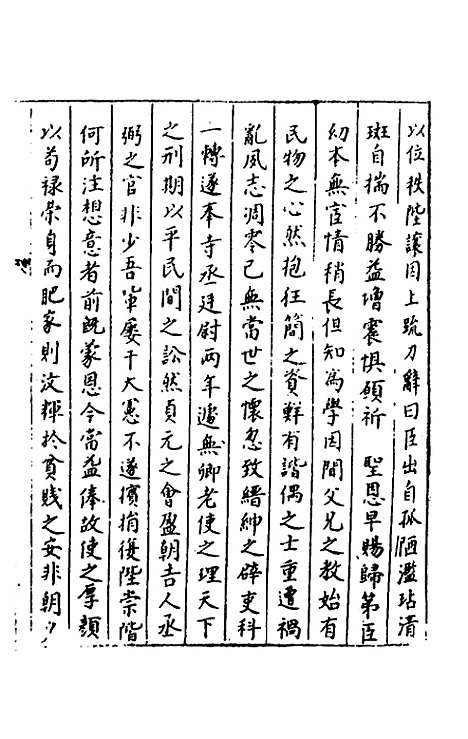 以位秩陛讓因上疏力辭曰臣出自孤陋濫玷清
班自揣不勝益增震惧頋祈 聖恩早賜歸第臣
幼本無宦情稍長但知為學因間父兄之教始有
民物之心然抱狂簡之資鮮有諧偶之士重遭禍
亂夙志凋零已無當世之懷忽致縉紳之辟吏科
一轉遂奉寺丞廷尉兩年遽無卿老使之理天下
之刑期以平民間之訟然貞元之會盈朝吉人丞
弼之官非少吾軰屢干大憲不遂擯捐復陛崇階
何所注想意者前旣蒙恩今當益俸故使之厚顏
以苟禄榮身而肥家則汶輝於貧賤之安非朝